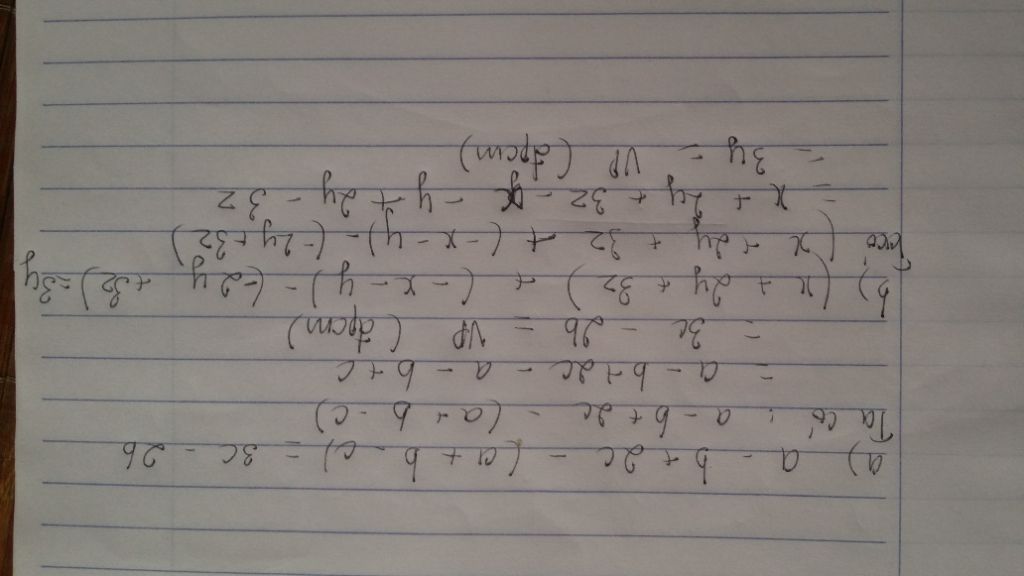 a) a - b + 2c - (a + b - c) = 3c - 2b
Ta có : a - b + 2c - (a + b - c)
= a - b + 2c - a - b + c
= 3c - 2b = VP (đpcm)
b) (x + 2y + 3z) + (-x - y) - (-2y + 3z) = 3y
Ta có (x + 2y + 3z + (-x - y) - (-2y + 3z)
= x + 2y + 3z - x - y + 2y - 3z
= 3y = VP (đpcm)